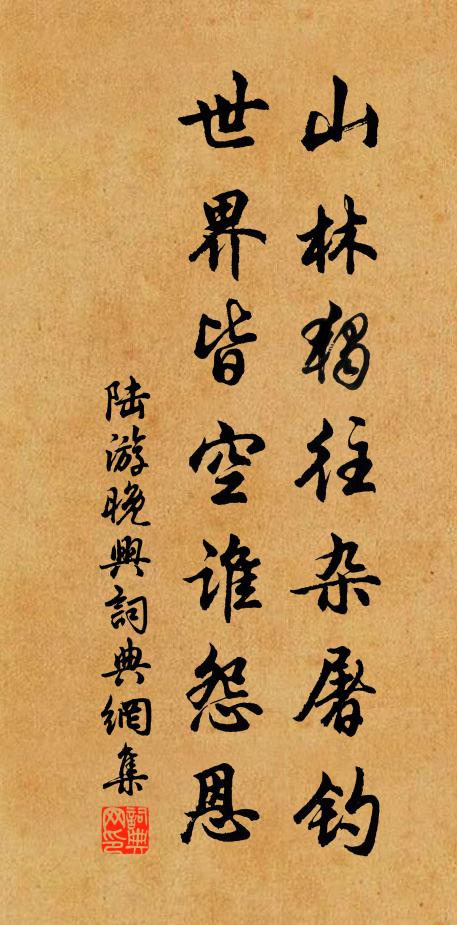 山林獨往杂屠钓
世界皆空谁怨恩
陆游晚興詞典網集
詞典网印